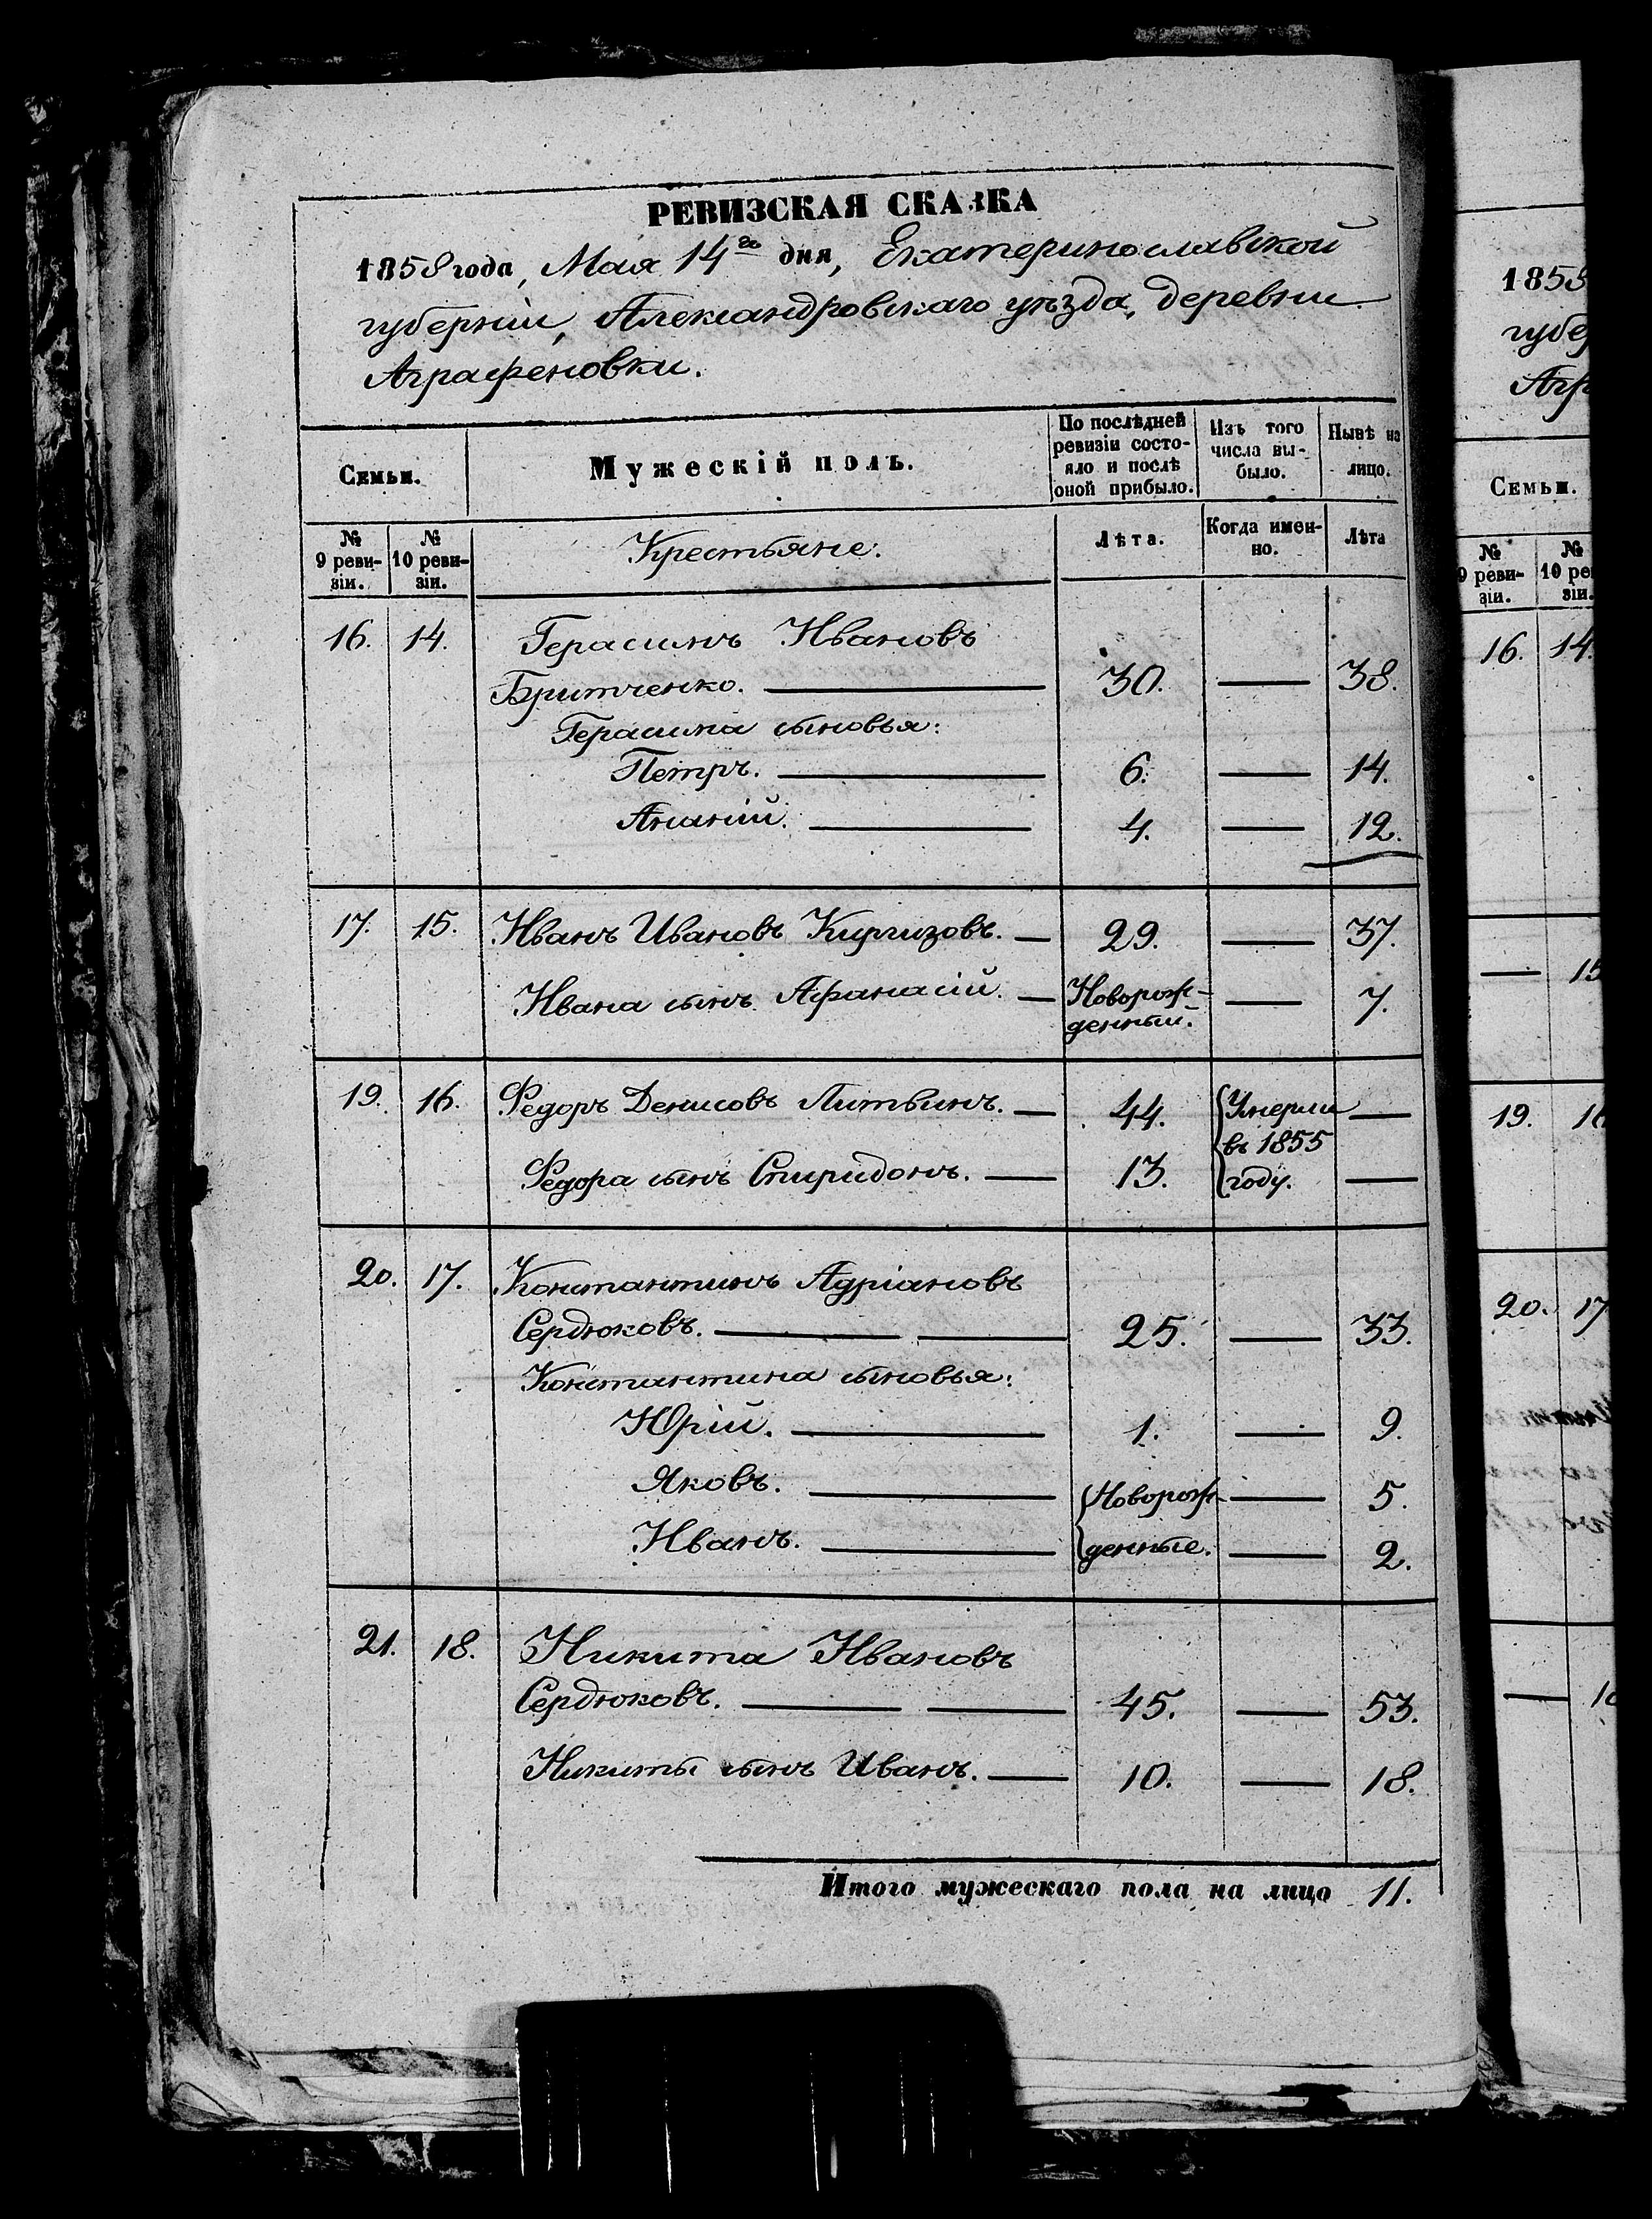 РЕВИЗСКАЯ СКАЗКА
1858 года, Мая 14го дня, Екатеринославской
губерніи, Александровскаго уѣзда, деревни
Аграфеновки.
Семьи.
Мужескій полъ.
По послѣдней
ревизіи состо-
яло и послѣ
оной прибыло.
Изъ того
числа вы-
было.
Нынѣ на
лицо.
№
9 реви-
зіи.
№
10 реви-
зіи.
Крестьяне:
Лѣта.
Когда имен-
но.
Лѣта
16. 14. Герасимъ Ивановъ
Бритченко. — 30. — 38.
Герасима сыновья:
Петръ. — 6. — 14.
Ананій. — 4. — 12.
17. 15. Иванъ Ивановъ Киргизовъ. — 29. — 37.
Ивана сынъ Афанасій. — Новорож- — 7.
денный.
19. 16. Федоръ Денисовъ Литвинъ. — 44. Умерли —
въ 1855
Федора сынъ Спиридонъ. — 13. году. —
20. 17. Константинъ Адріановъ
Сердюковъ. — 25. — 33.
Константина сыновья:
Юрій. — 1. — 9.
Яковъ. — Новорож- — 5.
Иванъ. — денные. — 2.
21. 18. Никита Ивановъ
Сердюковъ. — 45. — 53.
Никиты сынъ Иванъ. — 10. — 18.
Итого мужескаго пола на лицо 11.
185
губе
Агр
Семьи.
№
9 реви-
зіи.
№
10 ре
зіи.
16. 14.
— 15
19. 16
20. 17
—